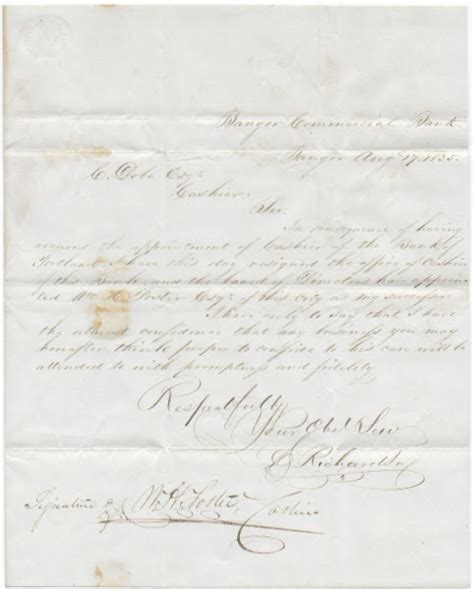 Bangor Commercial Bank
Bangor Aug 17. 1835.
E. Dole Esqr
Cashier.
Sir.
In consequence of having
received the appointment of Cashier of the Bank of
Portland I have this day resigned the office of Cashier
of this Bank, and the board of Directors has appoin
ted Wm H. Foster Esqr of this city as my successor
I have only to say that I have
the utmost confidence that any business you may
hereafter think proper to confide to his care will be
attended to with promptness and fidelity
Respectfully
Your Obed Serv
Richardson
Signature of W. H. Foster, Cashier